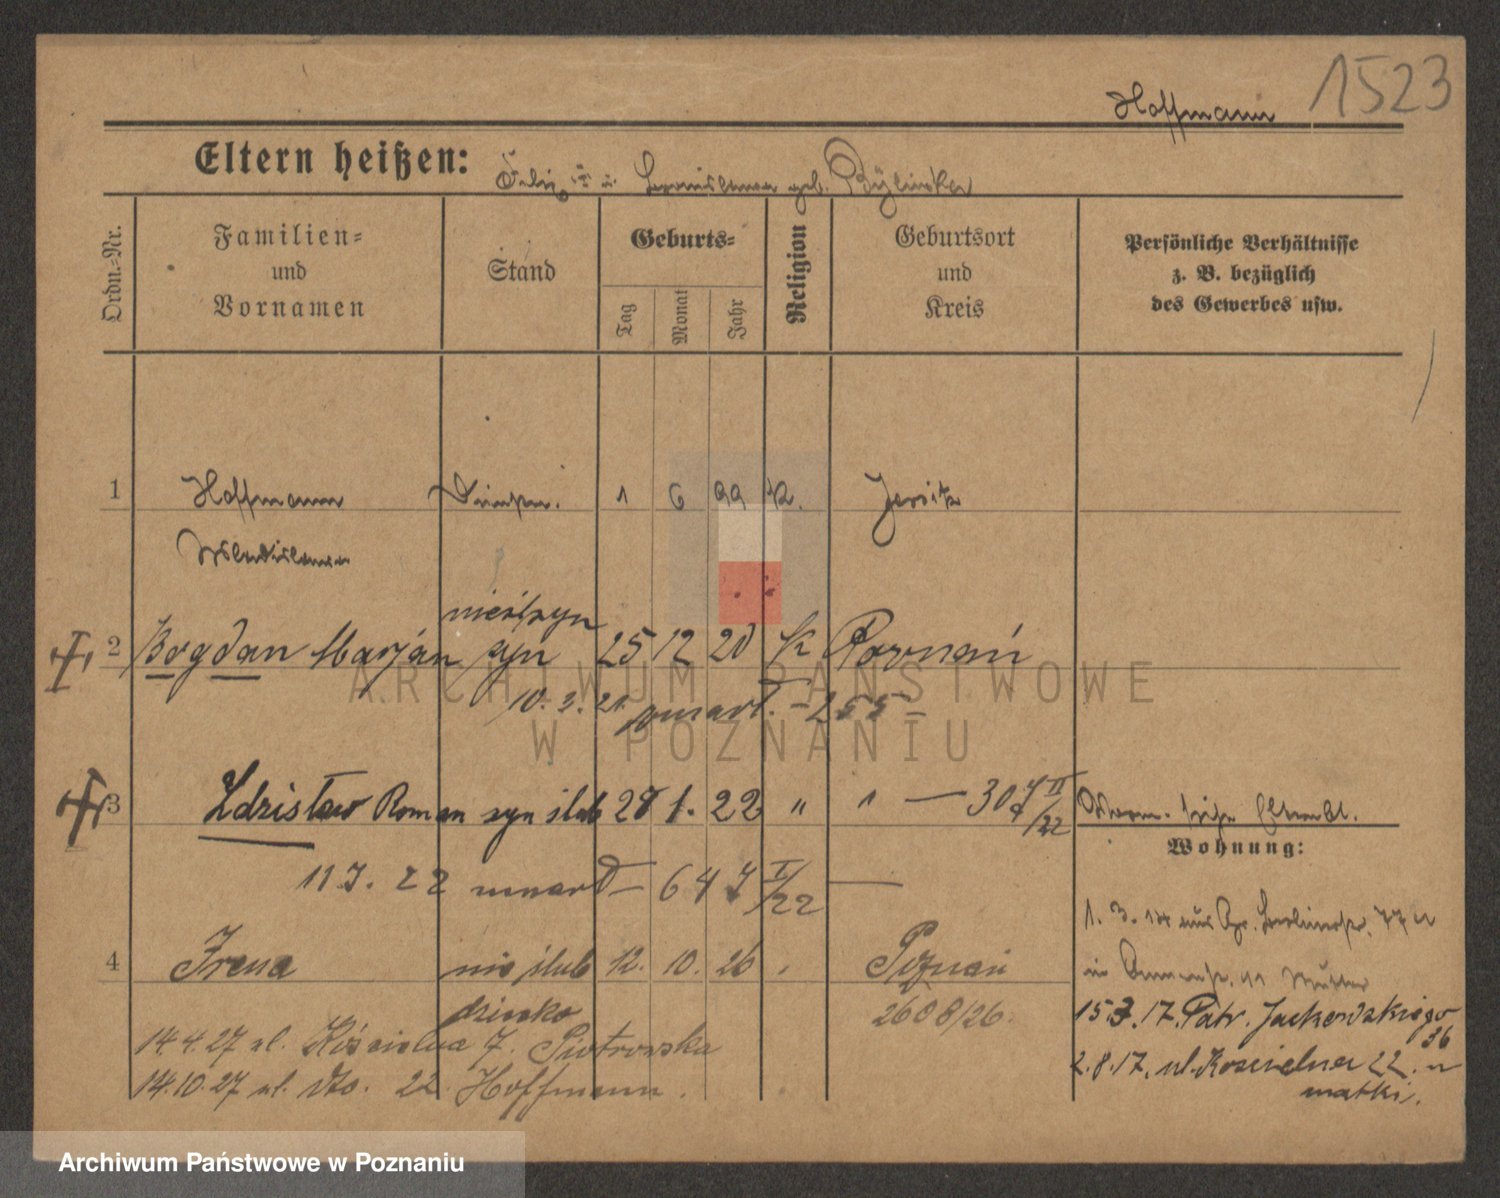 1523
Hoffmann
Eltern heißen: u. geb. Bylinska
Ordn.-Nr.
Familien-
und
Vornamen
Stand
Geburts-
Tag
Monat
Jahr
Religion
Geburtsort
und
Kreis
Persönliche Verhältnisse
z. B. bezüglich
des Gewerbes usw.
1 Hoffmann 1 6 99 k. Jersitz
Wladislawa
nieśl. syn
2 Bogdan Marjan syn 25 12 20 k Poznań
10. 3. 21. zmarł. - 255 -
3 Zdzisław Roman syn ślub 28 1. 22 " " — 307 II/22
Wohnung:
11 7. 22 zmarł — 647 /22 —
1. 3. 14 aus
4 Irena nieślub 12. 10. 26 . Poznań
dziecko 2608/26.
in 11 Mutter
15.3.17. Patr. Jackowskiego
36
14.4.27 ul. Kościelna 7. Piotrowska
2.8.17. ul. Koscielna 22. u
14.10.27 ul. dto. 22. Hoffmann.
matki.
ARCHIWUM PAŃSTWOWE
W POZNANIU
Archiwum Państwowe w Poznaniu